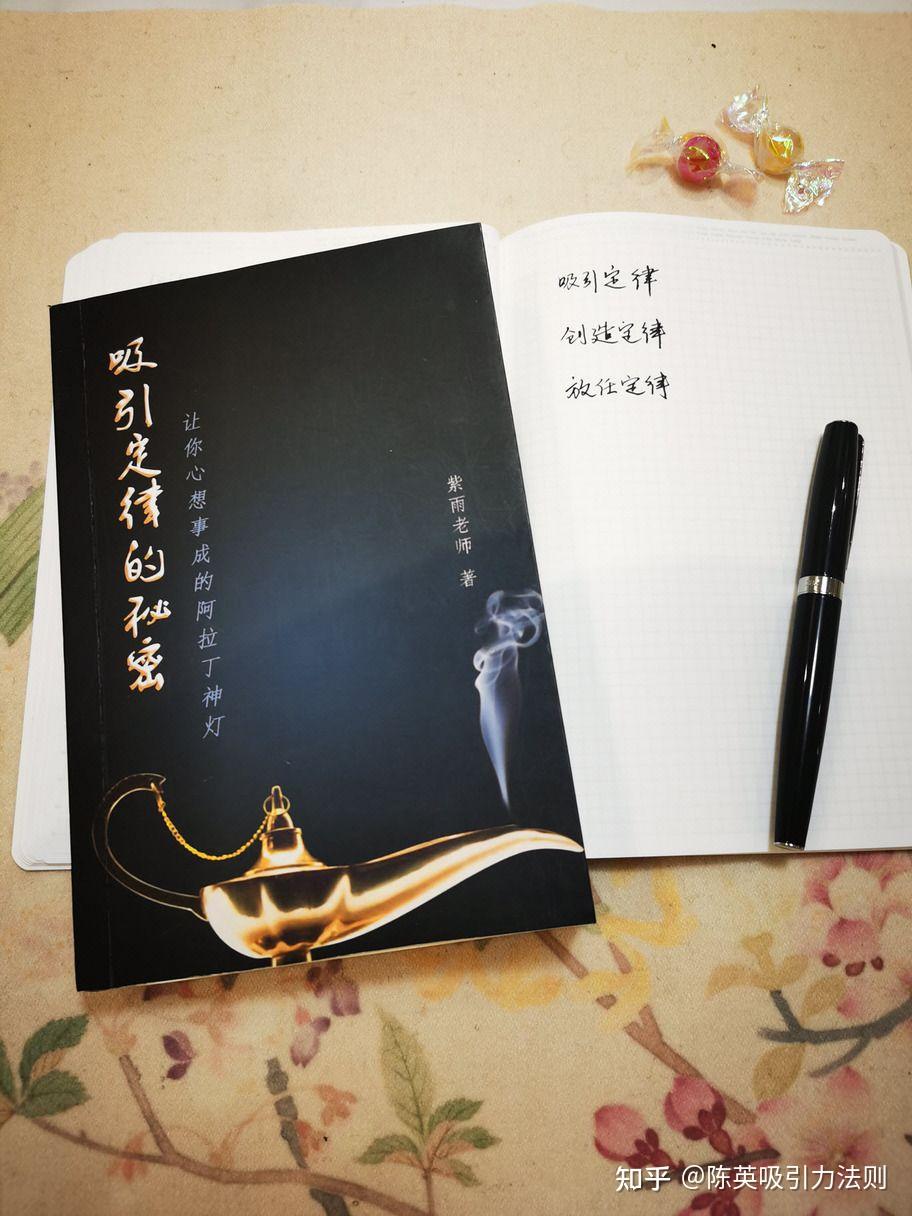 吸引定律的秘密
让你心想事成的阿拉丁神灯
紫雨老师 著
吸引定律
创造定律
放任定律
知乎 @陈英吸引力法则